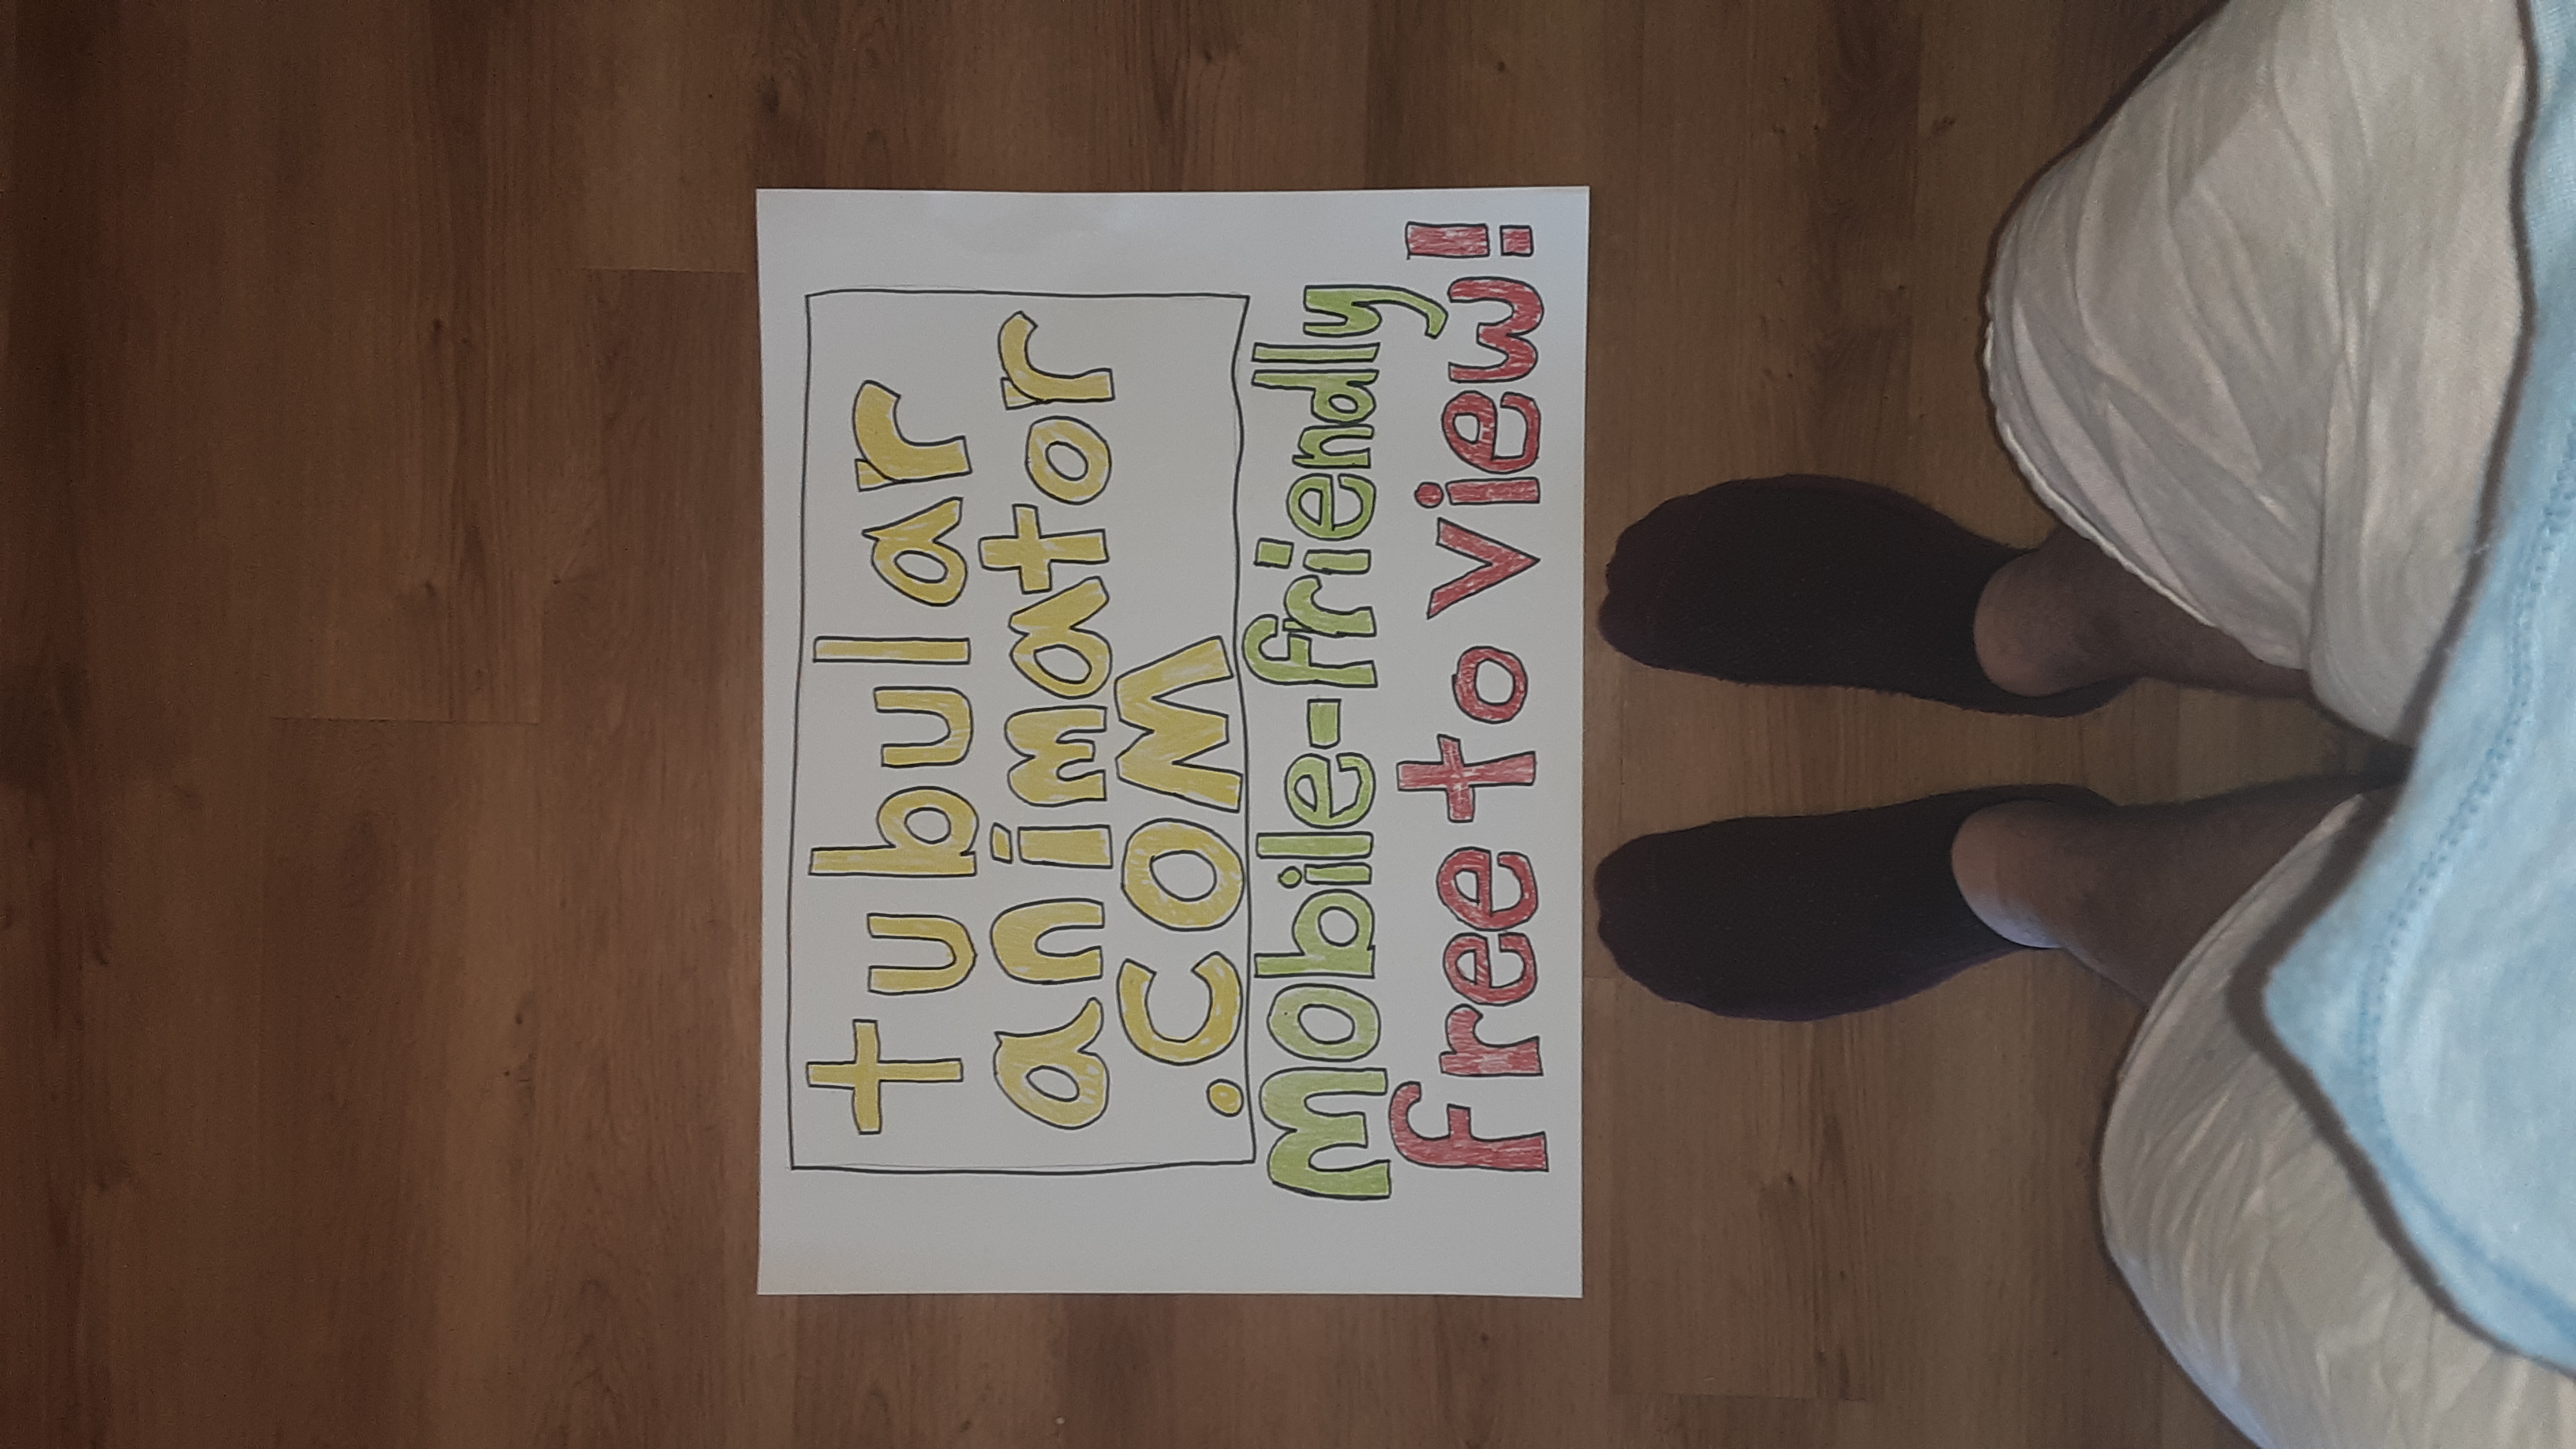 tubular
animator
.com
mobile-friendly
free to view!